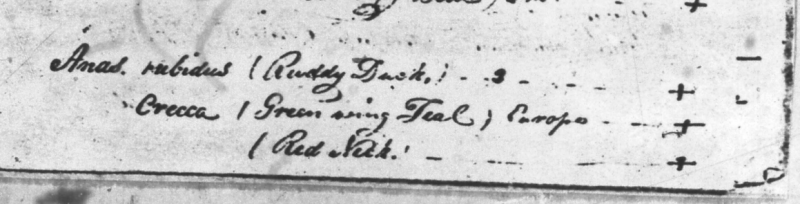 +
Anas. rubidus (Ruddy Duck.) - 3 - - - +
Crecca (Green wing Teal) Europe - - +
(Red Neck.) - - +